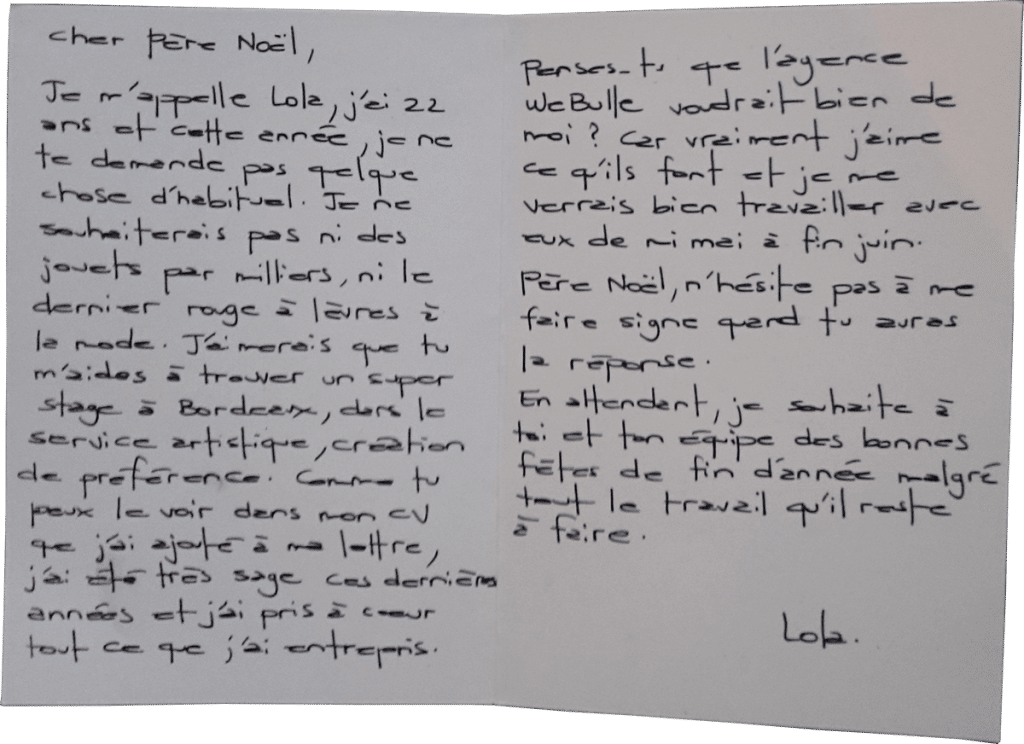 Cher Père Noël,
Je m'appelle Lola, j'ai 22
ans et cette année, je ne
te demande pas quelque
chose d'habituel. Je ne
souhaiterais pas ni des
jouets par milliers, ni le
dernier rouge à lèvres à
la mode. J'aimerais que tu
m'aides à trouver un super
stage à Bordeaux, dans le
service artistique, création
de préférence. Comme tu
peux le voir dans mon CV
que j'ai ajouté à ma lettre,
j'ai été très sage ces dernières
années et j'ai pris à coeur
tout ce que j'ai entrepris.
Penses-tu que l'agence
WeBulle voudrait bien de
moi ? Car vraiment j'aime
ce qu'ils font et je me
verrais bien travailler avec
eux de mi mai à fin juin.
Père Noël, n'hésite pas à me
faire signe quand tu auras
la réponse.
En attendant, je souhaite à
toi et ton équipe des bonnes
fêtes de fin d'année malgré
tout le travail qu'il reste
à faire.
Lola.